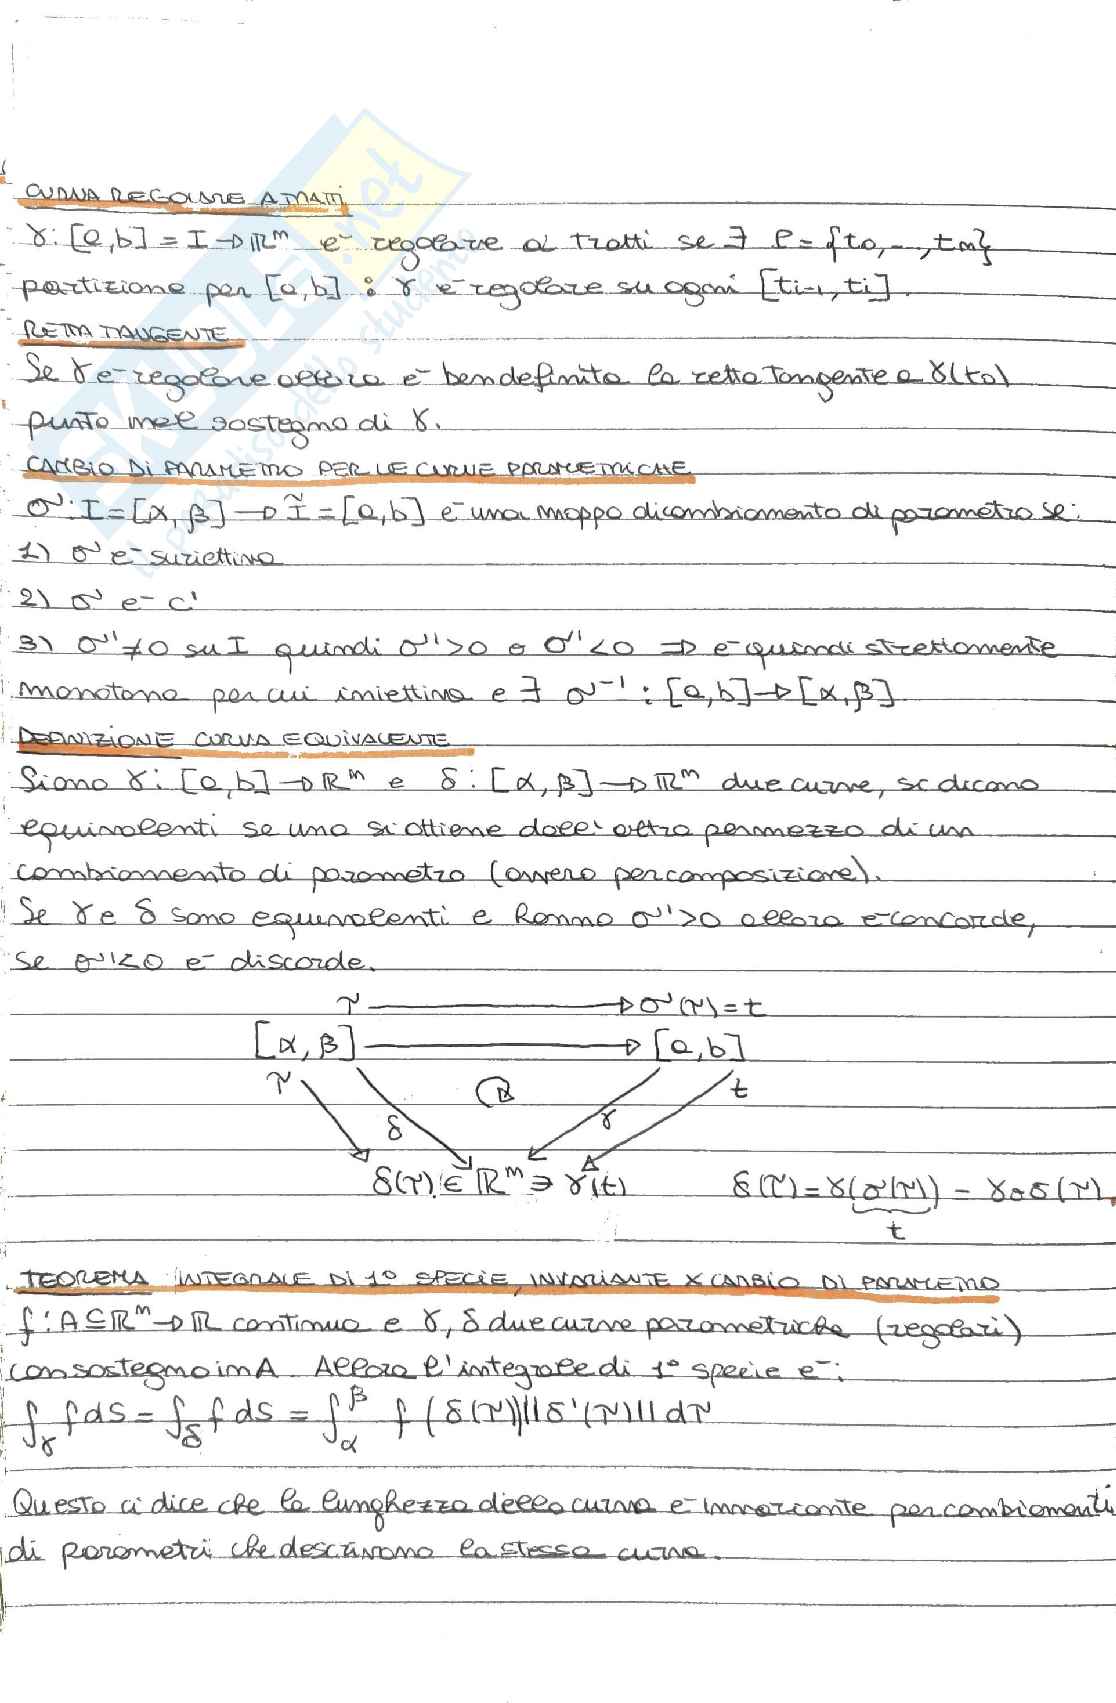 CURVA REGOLARE A TRATTI
γ: [a,b] = I → ℝᵐ e- regolare a tratti se ∃ P = {t0, --, tm}
partizione per [a,b] : γ e- regolare su ogni [ti-1, ti].
RETTA TANGENTE
Se γ e- regolare allora e- ben definita la retta tangente a γ(t0)
punto nel sostegno di γ.
CAMBIO DI PARAMETRO PER LE CURVE PARAMETRICHE
σ: I = [α, β] → Ĩ = [a,b] e- una mappa di cambiamento di parametro se:
1) σ e- suriettiva
2) σ e- C¹
3) σ' ≠ 0 su I quindi σ' > 0 o σ' < 0 ⇒ e- quindi strettamente
monotona per cui iniettiva e ∃ σ⁻¹ : [a,b] → [α, β]
DEFINIZIONE CURVA EQUIVALENTE
Siano γ: [a,b] → ℝᵐ e δ: [α, β] → ℝᵐ due curve, si dicono
equivalenti se una si ottiene dall'altra per mezzo di un
cambiamento di parametro (ovvero per composizione).
Se γ e δ sono equivalenti e hanno σ' > 0 allora e- concorde,
se σ' < 0 e- discorde.
τ → σ(τ) = t
[α, β] → [a,b]
τ t
δ γ
δ(τ) ∈ ℝᵐ ∋ γ(t) δ(τ) = γ(σ(τ)) = γ∘σ(τ).
t
TEOREMA INTEGRALE DI 1° SPECIE, INVARIANTE X CAMBIO DI PARAMETRO
f: A ⊆ ℝᵐ → ℝ continua e γ, δ due curve parametriche (regolari)
con sostegno in A. Allora l'integrale di 1° specie e-:
∫γ f ds = ∫δ f ds = ∫αβ f(δ(τ)) ||δ'(τ)|| dτ
Questo ci dice che la lunghezza della curva e- invariante per cambiamenti
di parametri che descrivono la stessa curva.
SKUOLA.net
il paradiso dello studente